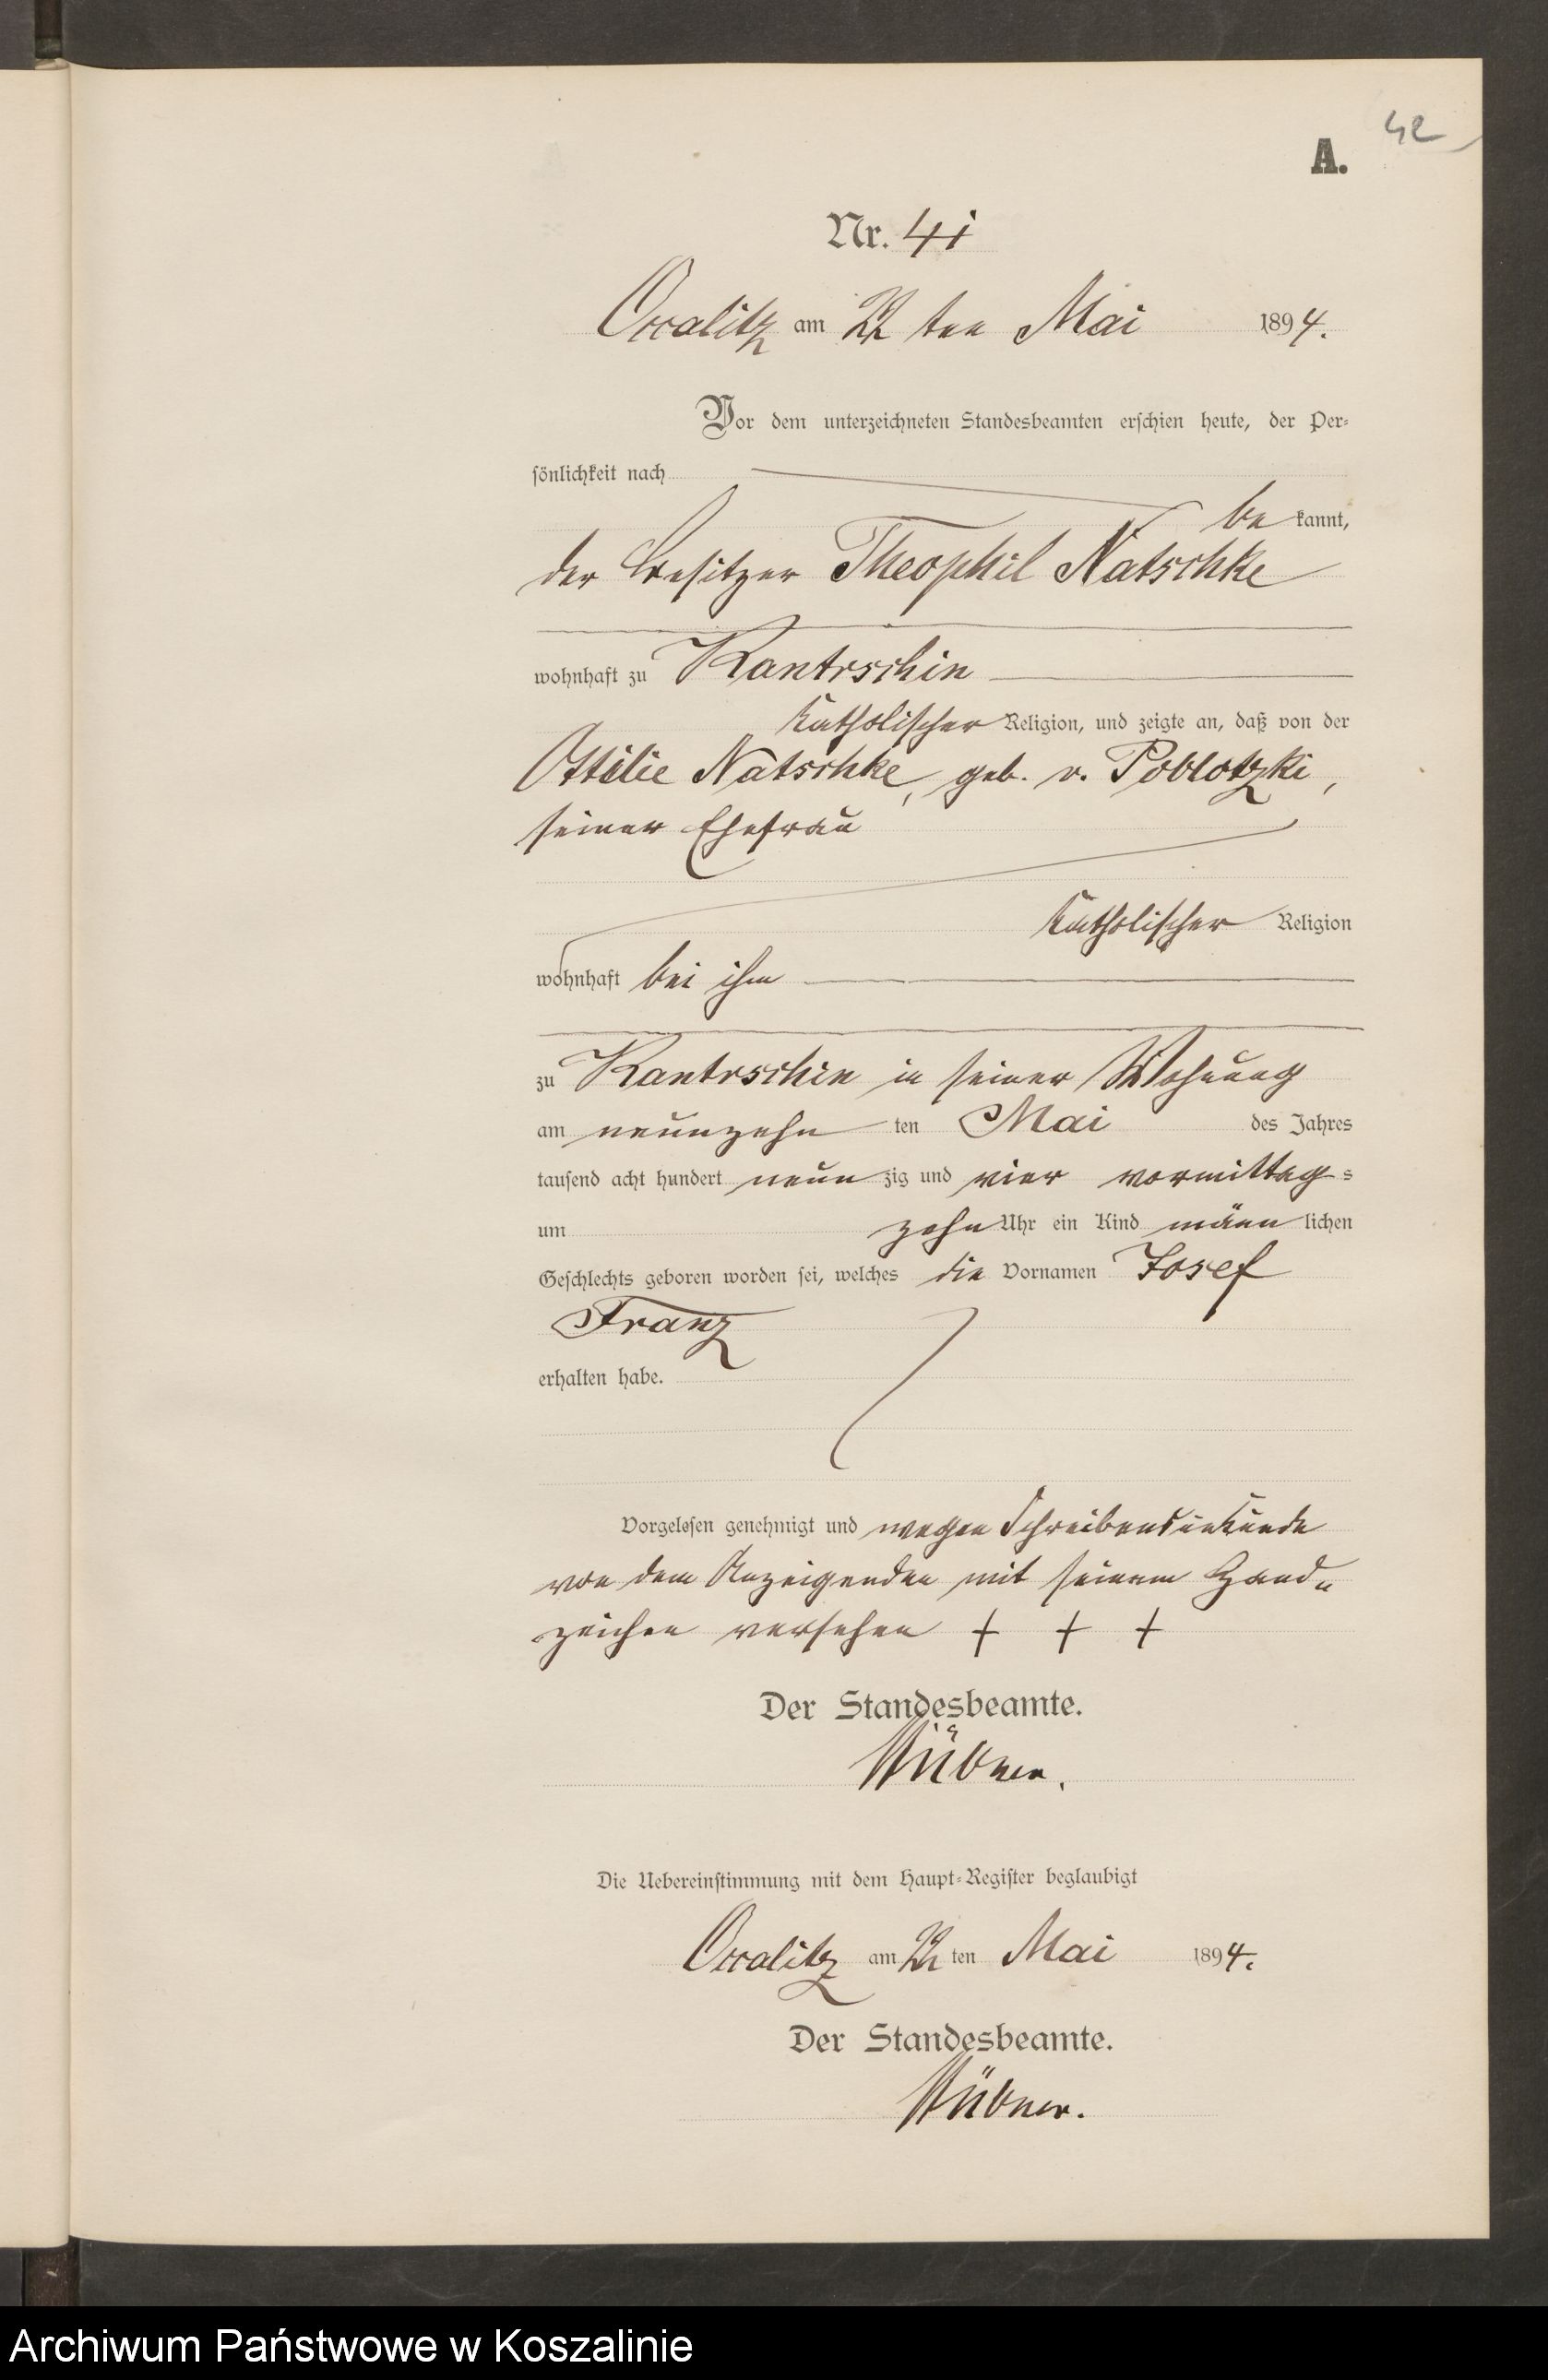 42
A.
Nr. 41
Occalitz am 22 ten Mai 1894.
Vor dem unterzeichneten Standesbeamten erschien heute, der Per-
sönlichkeit nach
be kannt,
der Besitzer Theophil Natschke
wohnhaft zu Kantrschin
katholischer Religion, und zeigte an, daß von der
Ottilie Natschke, geb. v. Poblotzki,
seiner Ehefrau
katholischer Religion
wohnhaft bei ihm
zu Kantrschin in seiner Wohnung
am neunzehn ten Mai des Jahres
tausend acht hundert neun zig und vier vormittag s
um zehn Uhr ein Kind männ lichen
Geschlechts geboren worden sei, welches die Vornamen Josef
Franz
erhalten habe.
Vorgelesen genehmigt und wegen Schreibensunkunde
von dem Anzeigenden mit seinem Hand-
zeichen versehen + + +
Der Standesbeamte.
Die Uebereinstimmung mit dem Haupt-Register beglaubigt
Occalitz am 22 ten Mai 1894.
Der Standesbeamte.
Archiwum Państwowe w Koszalinie